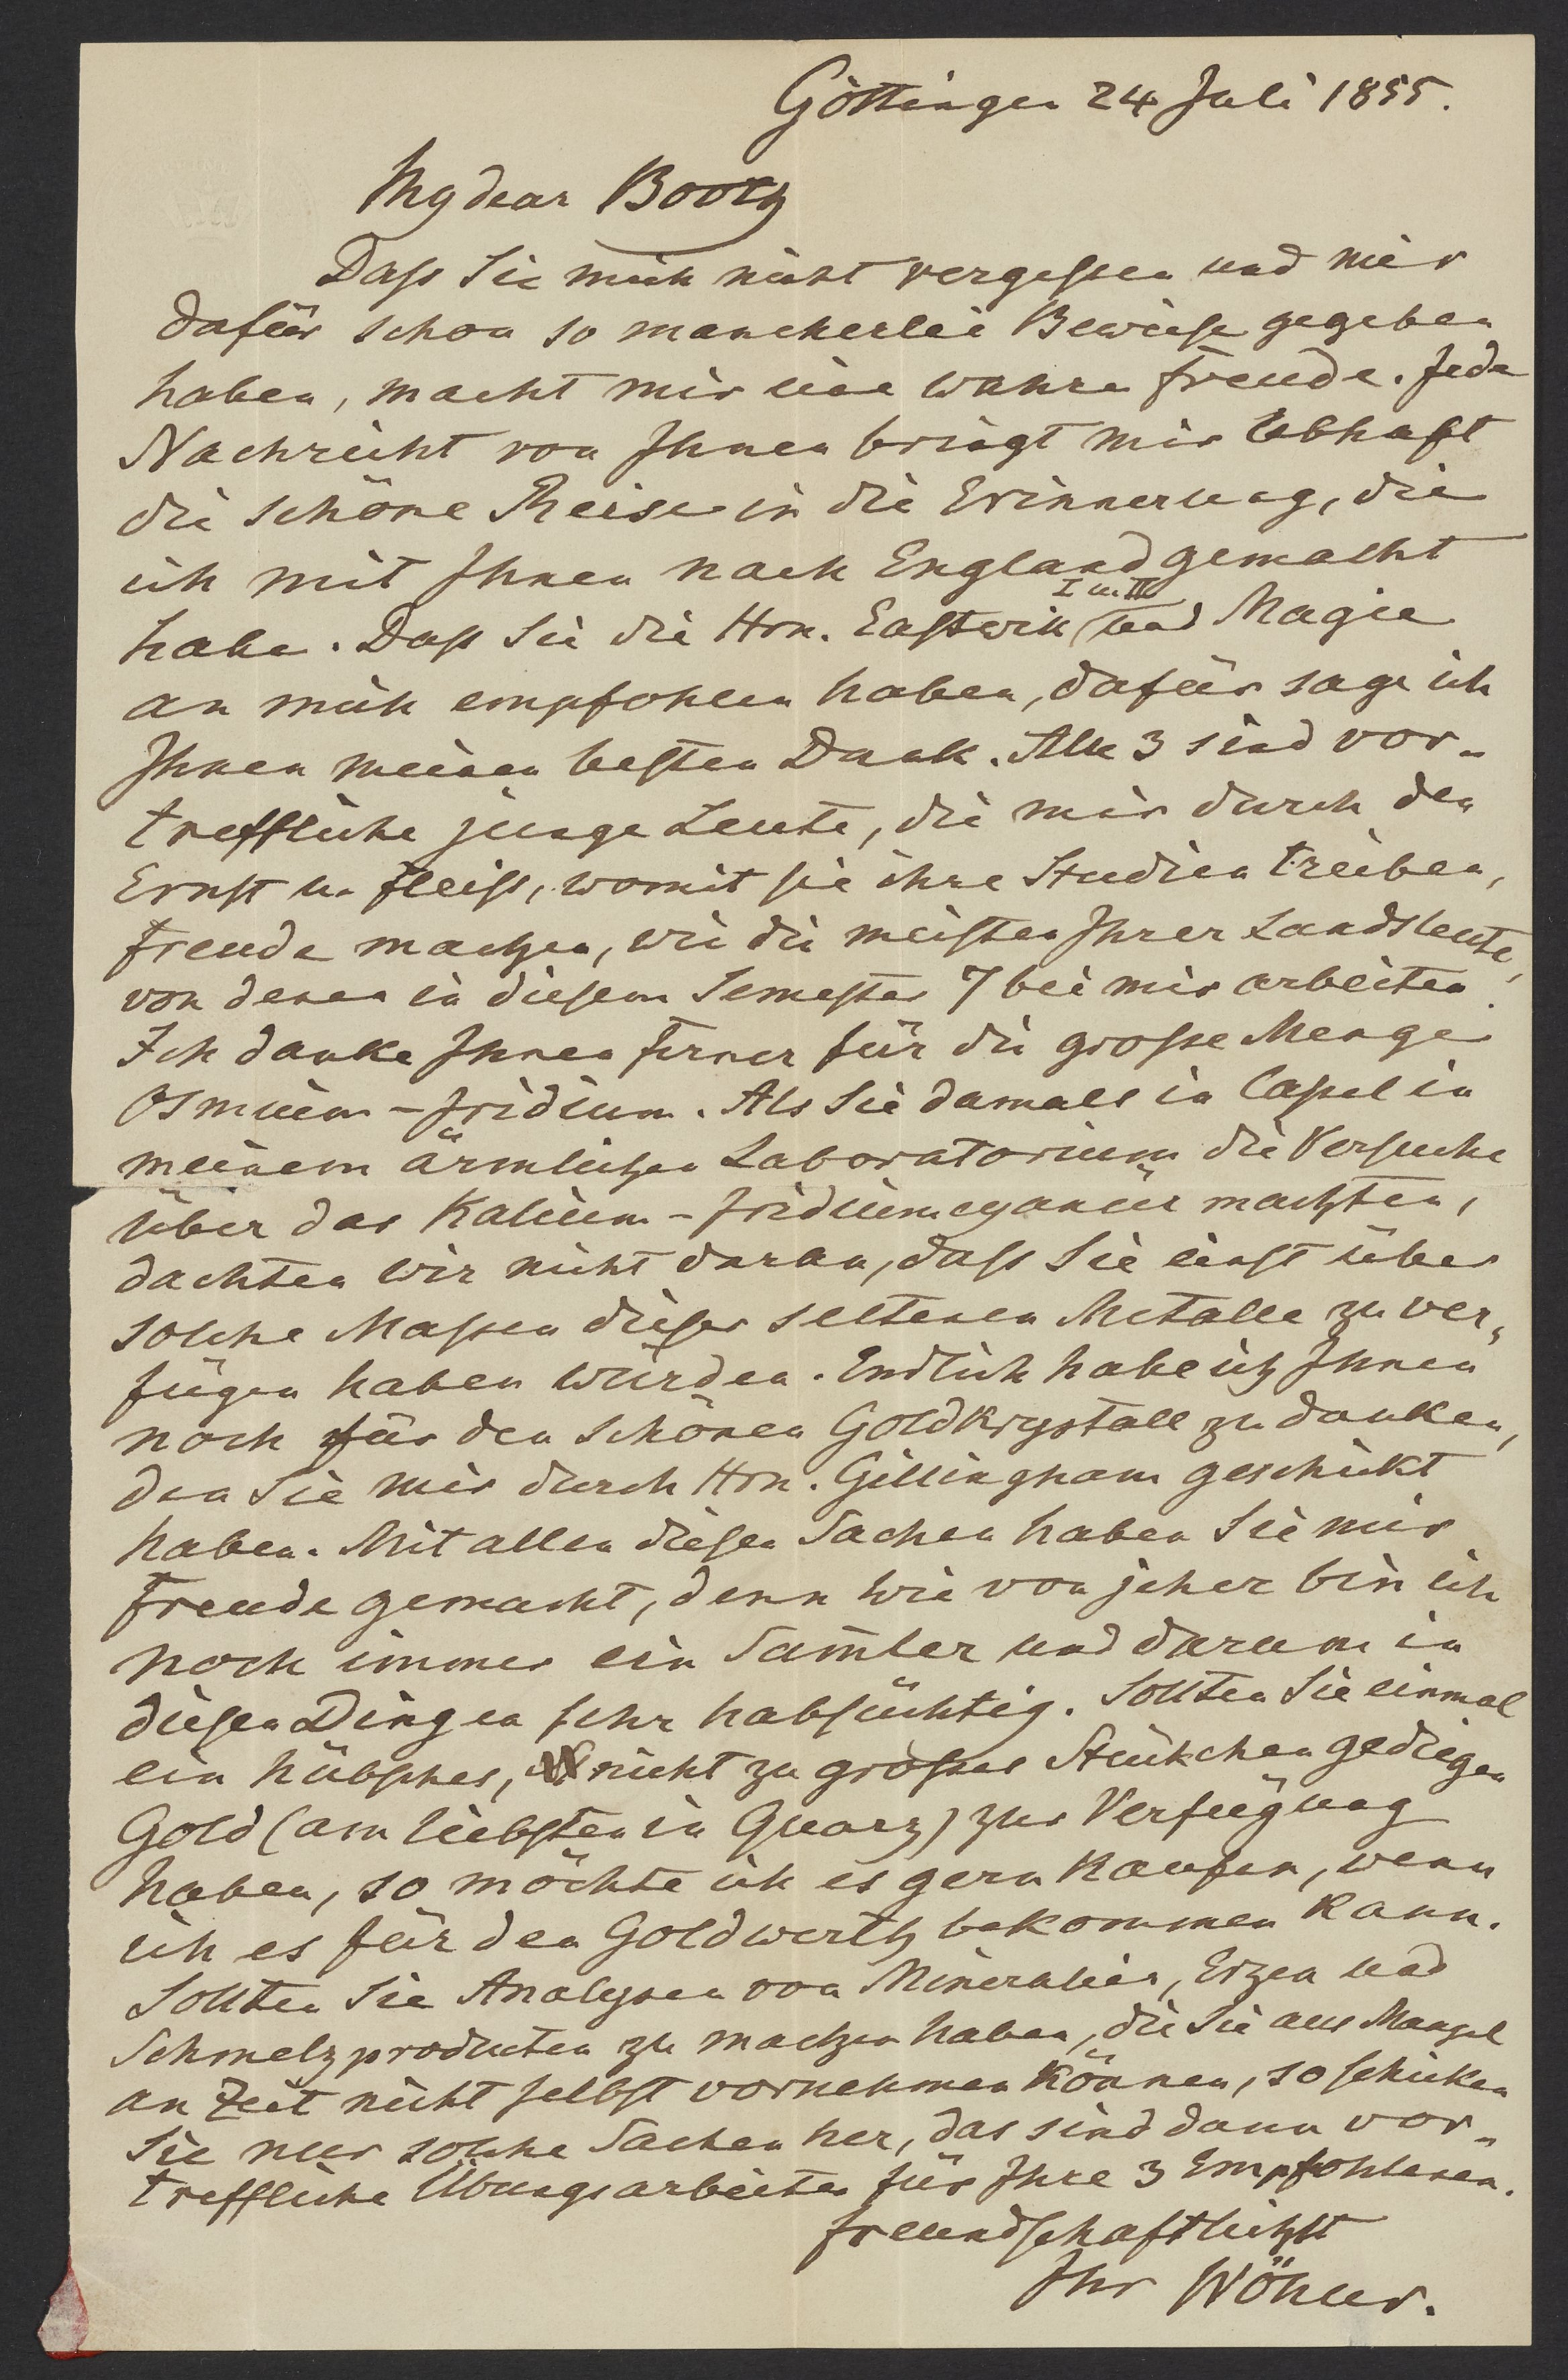 Göttingen 24 Juli 1855.
My dear Booth
Dass Sie mich nicht vergessen und mir
dafür schon so mancherlei Beweise gegeben
haben, macht mir eine wahre Freude. Jede
Nachricht von Ihnen bringt mir lebhaft
die schöne Reise in die Erinnerung, die
ich mit Ihnen nach England gemacht
habe. Dass Sie die Hrn. Eastwik I u. II und Magie
an mich empfohlen haben, dafür sage ich
Ihnen meinen besten Dank. Alle 3 sind vor-
treffliche junge Leute, die mir durch den
Ernst u. Fleiss, womit sie ihre Studien treiben,
Freude machen, wie die meisten Ihrer Landsleute,
von denen in diesem Semester 7 bei mir arbeiten.
Ich danke Ihnen ferner für die grosse Menge
Osmium-Iridium. Als Sie damals in Cassel in
meinem ärmlichen Laboratorium die Versuche
über das Kalium-Iridiumcyanür machten,
dachten wir nicht daran, dass Sie einst über
solche Massen dieser seltenen Metalle zu ver-
fügen haben würden. Endlich habe ich Ihnen
noch für den schönen Goldkrystall zu danken,
den Sie mir durch Hrn. Gillingham geschickt
haben. Mit allen diesen Sachen haben Sie mir
Freude gemacht, denn wie von jeher bin ich
noch immer ein Sam̄ler und darum in
diesen Dingen sehr habsüchtig. Sollten Sie einmal
ein hübsches, nicht zu grosses Stückchen gediegen
Gold (am liebsten in Quarz) zur Verfügung
haben, so möchte ich es gern kaufen, wenn
ich es für den Goldwerth bekommen kann.
Sollten Sie Analysen von Mineralien, Erzen und
Schmelzproducten zu machen haben, die Sie aus Mangel
an Zeit nicht selbst vornehmen können, so schicken
Sie nur solche Sachen her, das sind dann vor-
treffliche Übungsarbeiten für Ihre 3 Empfohlenen.
freundschaftlichst
Ihr Wöhler.